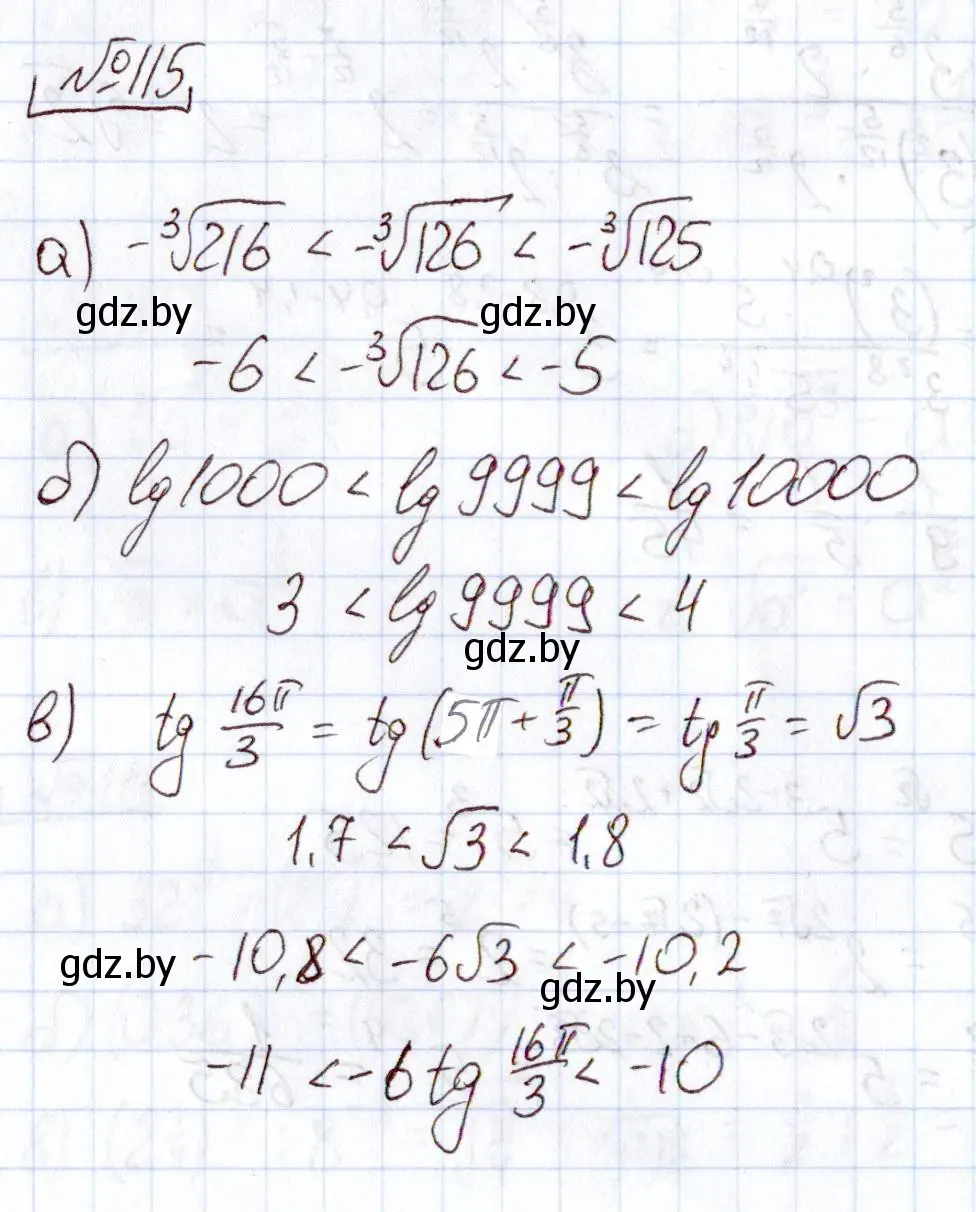 №115
а) -∛216 < -∛126 < -∛125
gdz.by gdz.by
-6 < -∛126 < -5
б) lg 1000 < lg 9999 < lg 10000
3 < lg 9999 < 4
gdz.by
в) tg 16π/3 = tg (5π + π/3) = tg π/3 = √3
1,7 < √3 < 1,8
gdz.by -10,8 < -6√3 < -10,2
gdz.by
-11 < -6 tg 16π/3 < -10